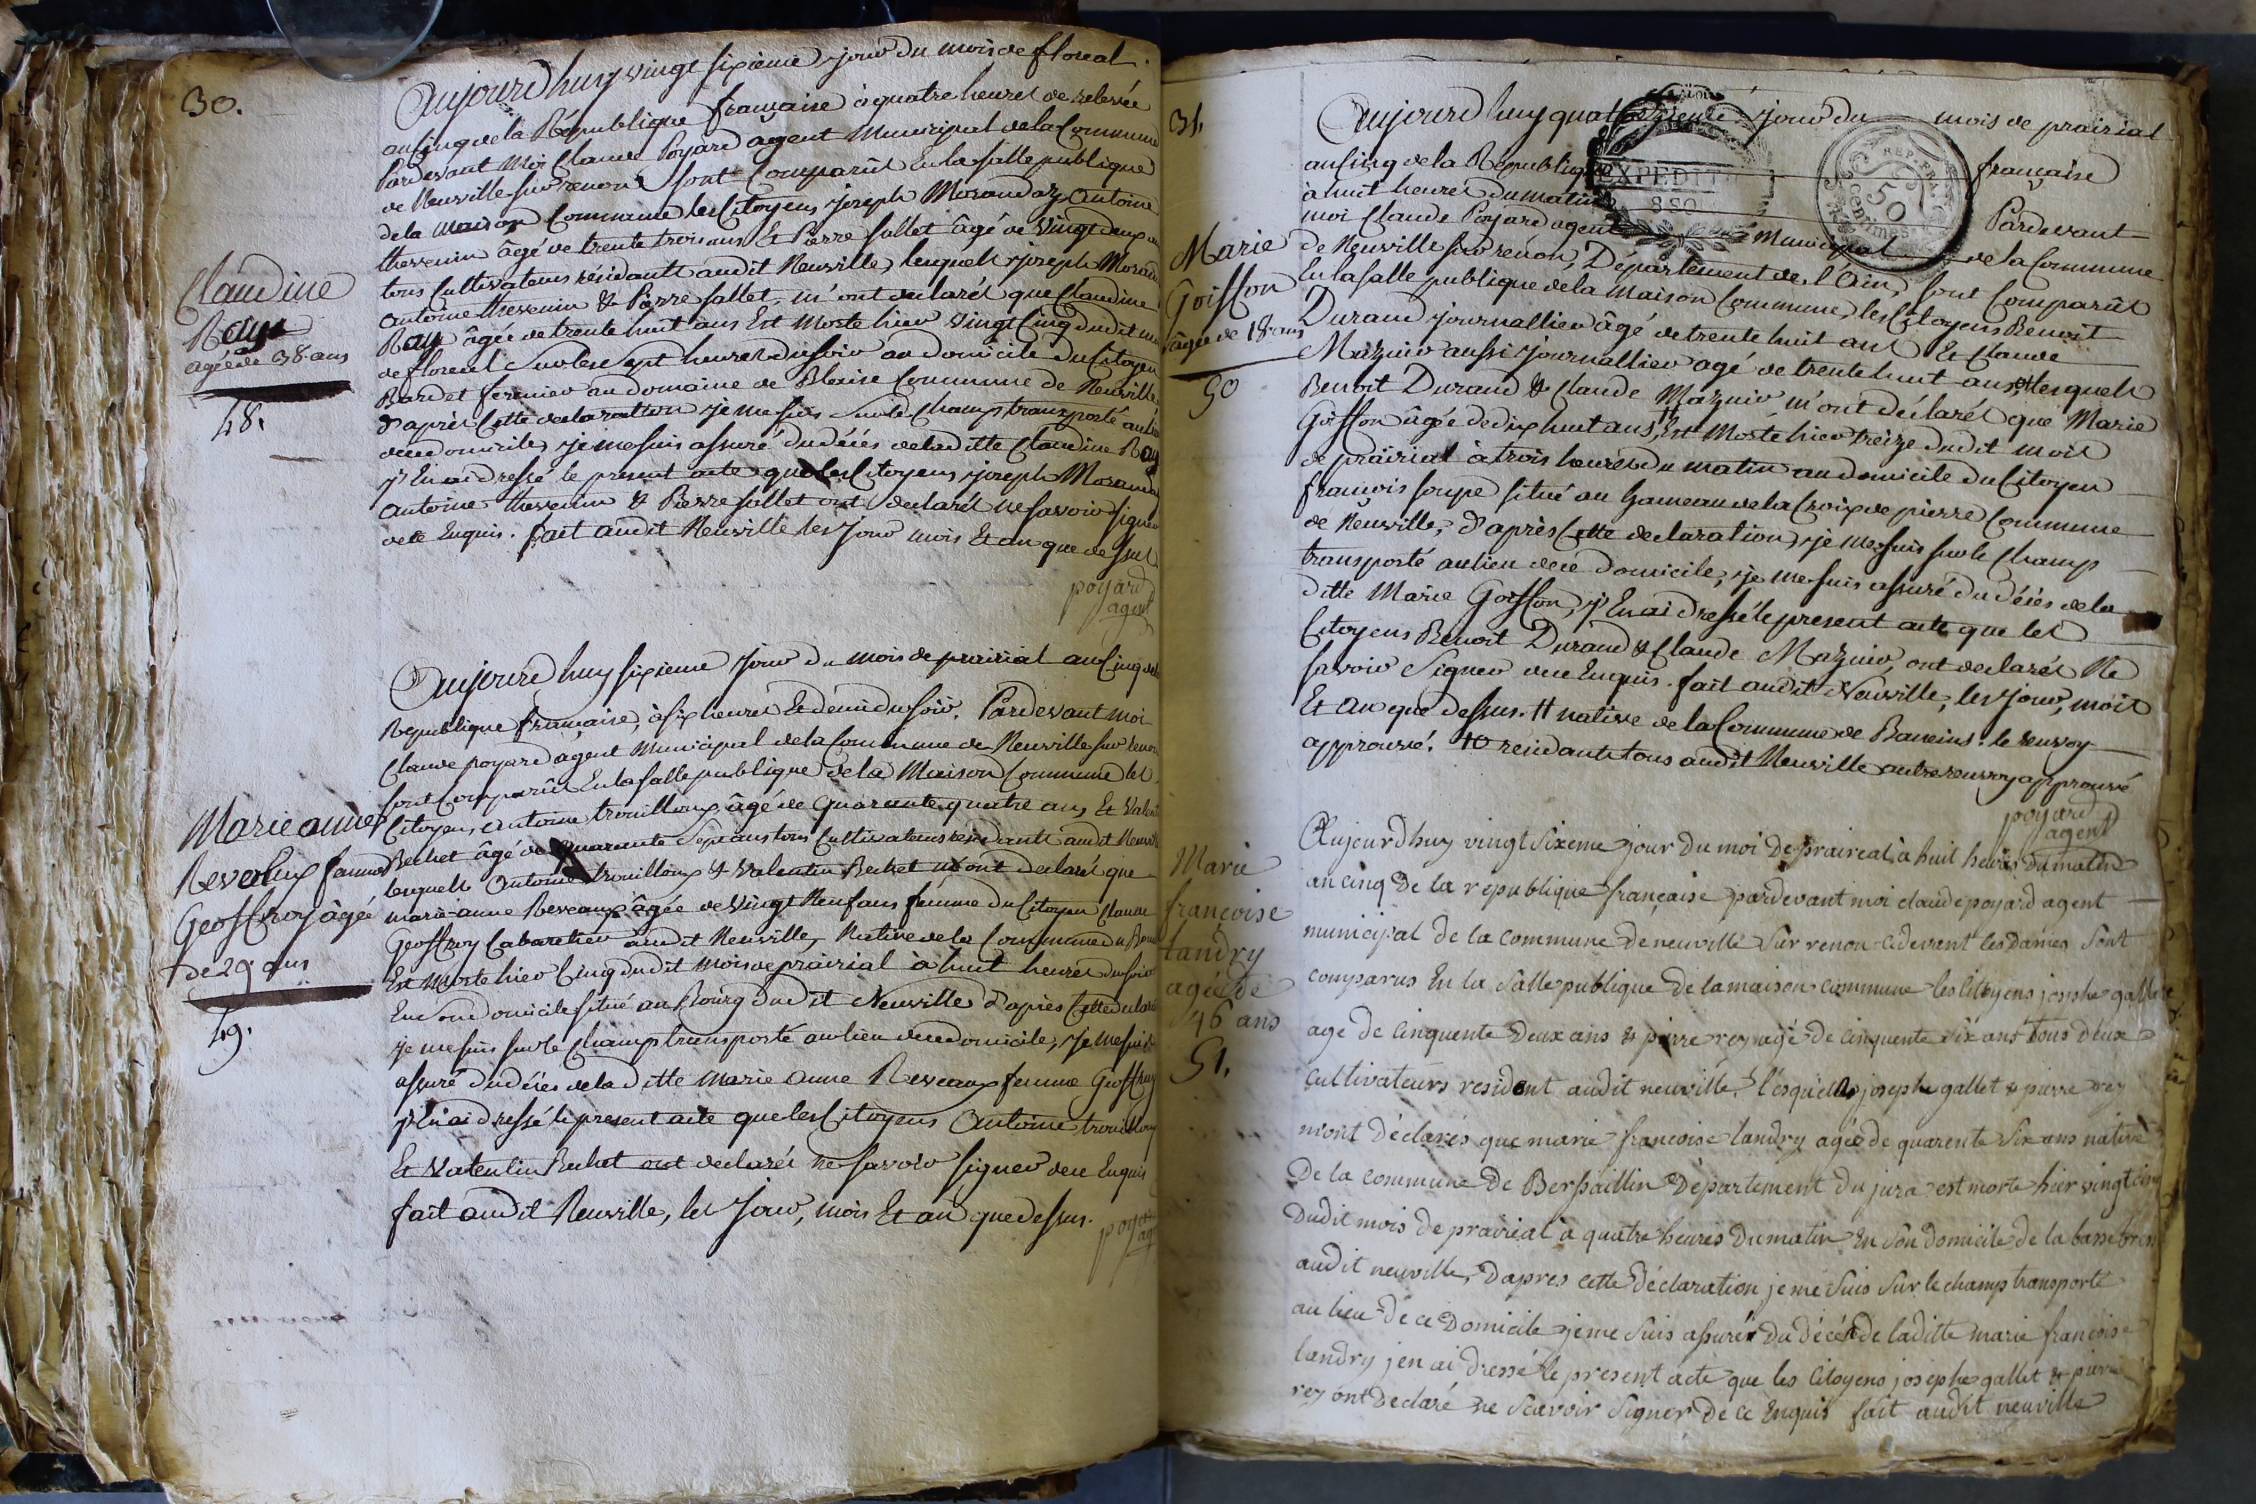 30.
Aujourdhuy vingt sixieme jour du mois de floreal
an Cinq de la République française à quatre heures de relevée
Pardevant Moi Claude Poyard agent Municipal de la Commune
de Neuville sur renon sont Comparût En la salle publique
de la Maison Commune les Citoyens joseph Morandaz, Antoine
thevenin âgé de trente trois ans Et Pierre sallet âgé de Vingt deux
tous Cultivateurs résidants audit Neuville, lesquels joseph Morand
Antoine thevenin & Pierre sallet, m'ont declarés que Claudine
Claudine
Ray
agée de 38 ans
48.
Ray âgée de trente huit ans Est Morte hier Vingt Cinq dudit
de floreal sur les sept heures du soir au domicile du Citoyen
Bardet fermier au domaine de Blaise Commune de Neuville
d'après Cette declaration je me suis sur le Champ transporté au lieu
de ce domicile, je me suis assuré du décés de laditte Claudine Ray
j'En ai dressé le present acte que les Citoyens joseph Morandaz
Antoine thevenin & Pierre sallet ont declarés ne savoir signer
de ce Enquis. fait audit Neuville les Jour mois Et an que dessus
poyard
agent
Aujourdhuy sixieme jour du mois de prairial an Cinq de la
Republique française, à six heures Et demi du soir. Pardevant moi
Claude poyard agent Municipal de la Commune de Neuville sur renon
sont Comparût En la salle publique de la Maison Commune les
Citoyens, Antoine trouilloux âgé de quarante quatre ans, Et Valentin
Marie anne
Reveaux femme
Geoffroy âgée
de 29 ans
49.
Bechet âgé de quarante sept ans tous Cultivateurs residants audit Neuville
lesquels Antoine trouilloux & Valentin Bechet m'ont declarés que
marie-anne Reveaux âgée de Vingt Neuf ans femme du Citoyen Claude
Geoffroy Cabaretier audit Neuville, Native de la Commune de
Est Morte hier Cinq dudit Mois de prairial à huit heures du soir
En son domicile situé au Bourg dudit Neuville d'apres Cette
je me suis sur le Champ transporté au lieu de ce domicile, je me suis
assuré du décés de la ditte Marie Anne Reveaux femme Geoffroy
j'En ai dressé le present acte que les Citoyens Antoine trouilloux
Et Valentin Bechet ont declarés ne savoir signer de ce Enquis
fait audit Neuville, les Jour, mois Et an que dessus.
31.
Aujourdhuy quatorzieme jour du mois de prairial
an Cinq de la République française
EXPEDIT
REP. FRA.
50
Centimes
à huit heures du matin Pardevant
moi Claude Poyard agent Municipal de la Commune
de Neuville sur renon, Département de l'Ain, sont Comparût
En la salle publique de la Maison Commune, les Citoyens Benoit
Marie
Goiffon
âgée de 18 ans
50
Durand journallier âgé de trente huit ans Et Claude
Mazuir aussi journallier agé de trente huit ans, lesquels
Benoit Durand & Claude Mazuir m'ont déclarés que Marie
Goiffon âgée de dix huit ans, Est Morte hier treize dudit mois
de prairial à trois heures du matin au domicile du Citoyen
françois soupe situé au hameau de la Croix de pierre Commune
de Neuville, d'après Cette declaration, je me suis sur le Champ
transporté au lieu de ce domicile, je me suis assuré du décés de la
ditte Marie Goiffon, j'En ai dressé le present acte que les
Citoyens Benoit Durand & Claude Mazuir, ont declarés Ne
savoir Signer de ce Enquis. fait audit Neuville, les Jour, mois
Et An que dessus. # native de la Commune de Baneins. le renvoy
approuvé. residants tous audit Neuville autre renvoy approuvé
poyard
agent
Aujourdhuy vingt sixeme jour du moi de praireal à huit heures du matin
an cinq de la république française pardevant moi claude poyard agent
municipal de la commune de neuville sur renon cidevant les dames sont
Marie
françoise
landry
agée de
46 ans
51.
comparus En la Salle publique de la maison commune les Citoyens josephe gallet
age de cinquente deux ans & pierre rey agé de cinquente six ans tous deux
cultivateurs resident audit neuville, lesquels josephe gallet & pierre rey
m'ont déclarés que marie francoise landry agée de quarente six ans native
de la commune de Bersaillin département du jura est morte hier vingt cinq
dudit mois de praireal à quatre heures du matin En son domicile de la basse
audit neuville, dapres cette déclaration je me suis sur le champs transporté
au lieu de ce domicile je me suis assuré du décés de laditte marie francoise
landry jen ai dressé le present acte que les Citoyens josephe gallet & pierre
rey ont declaré ne scavoir signer de ce Enquis fait audit neuville